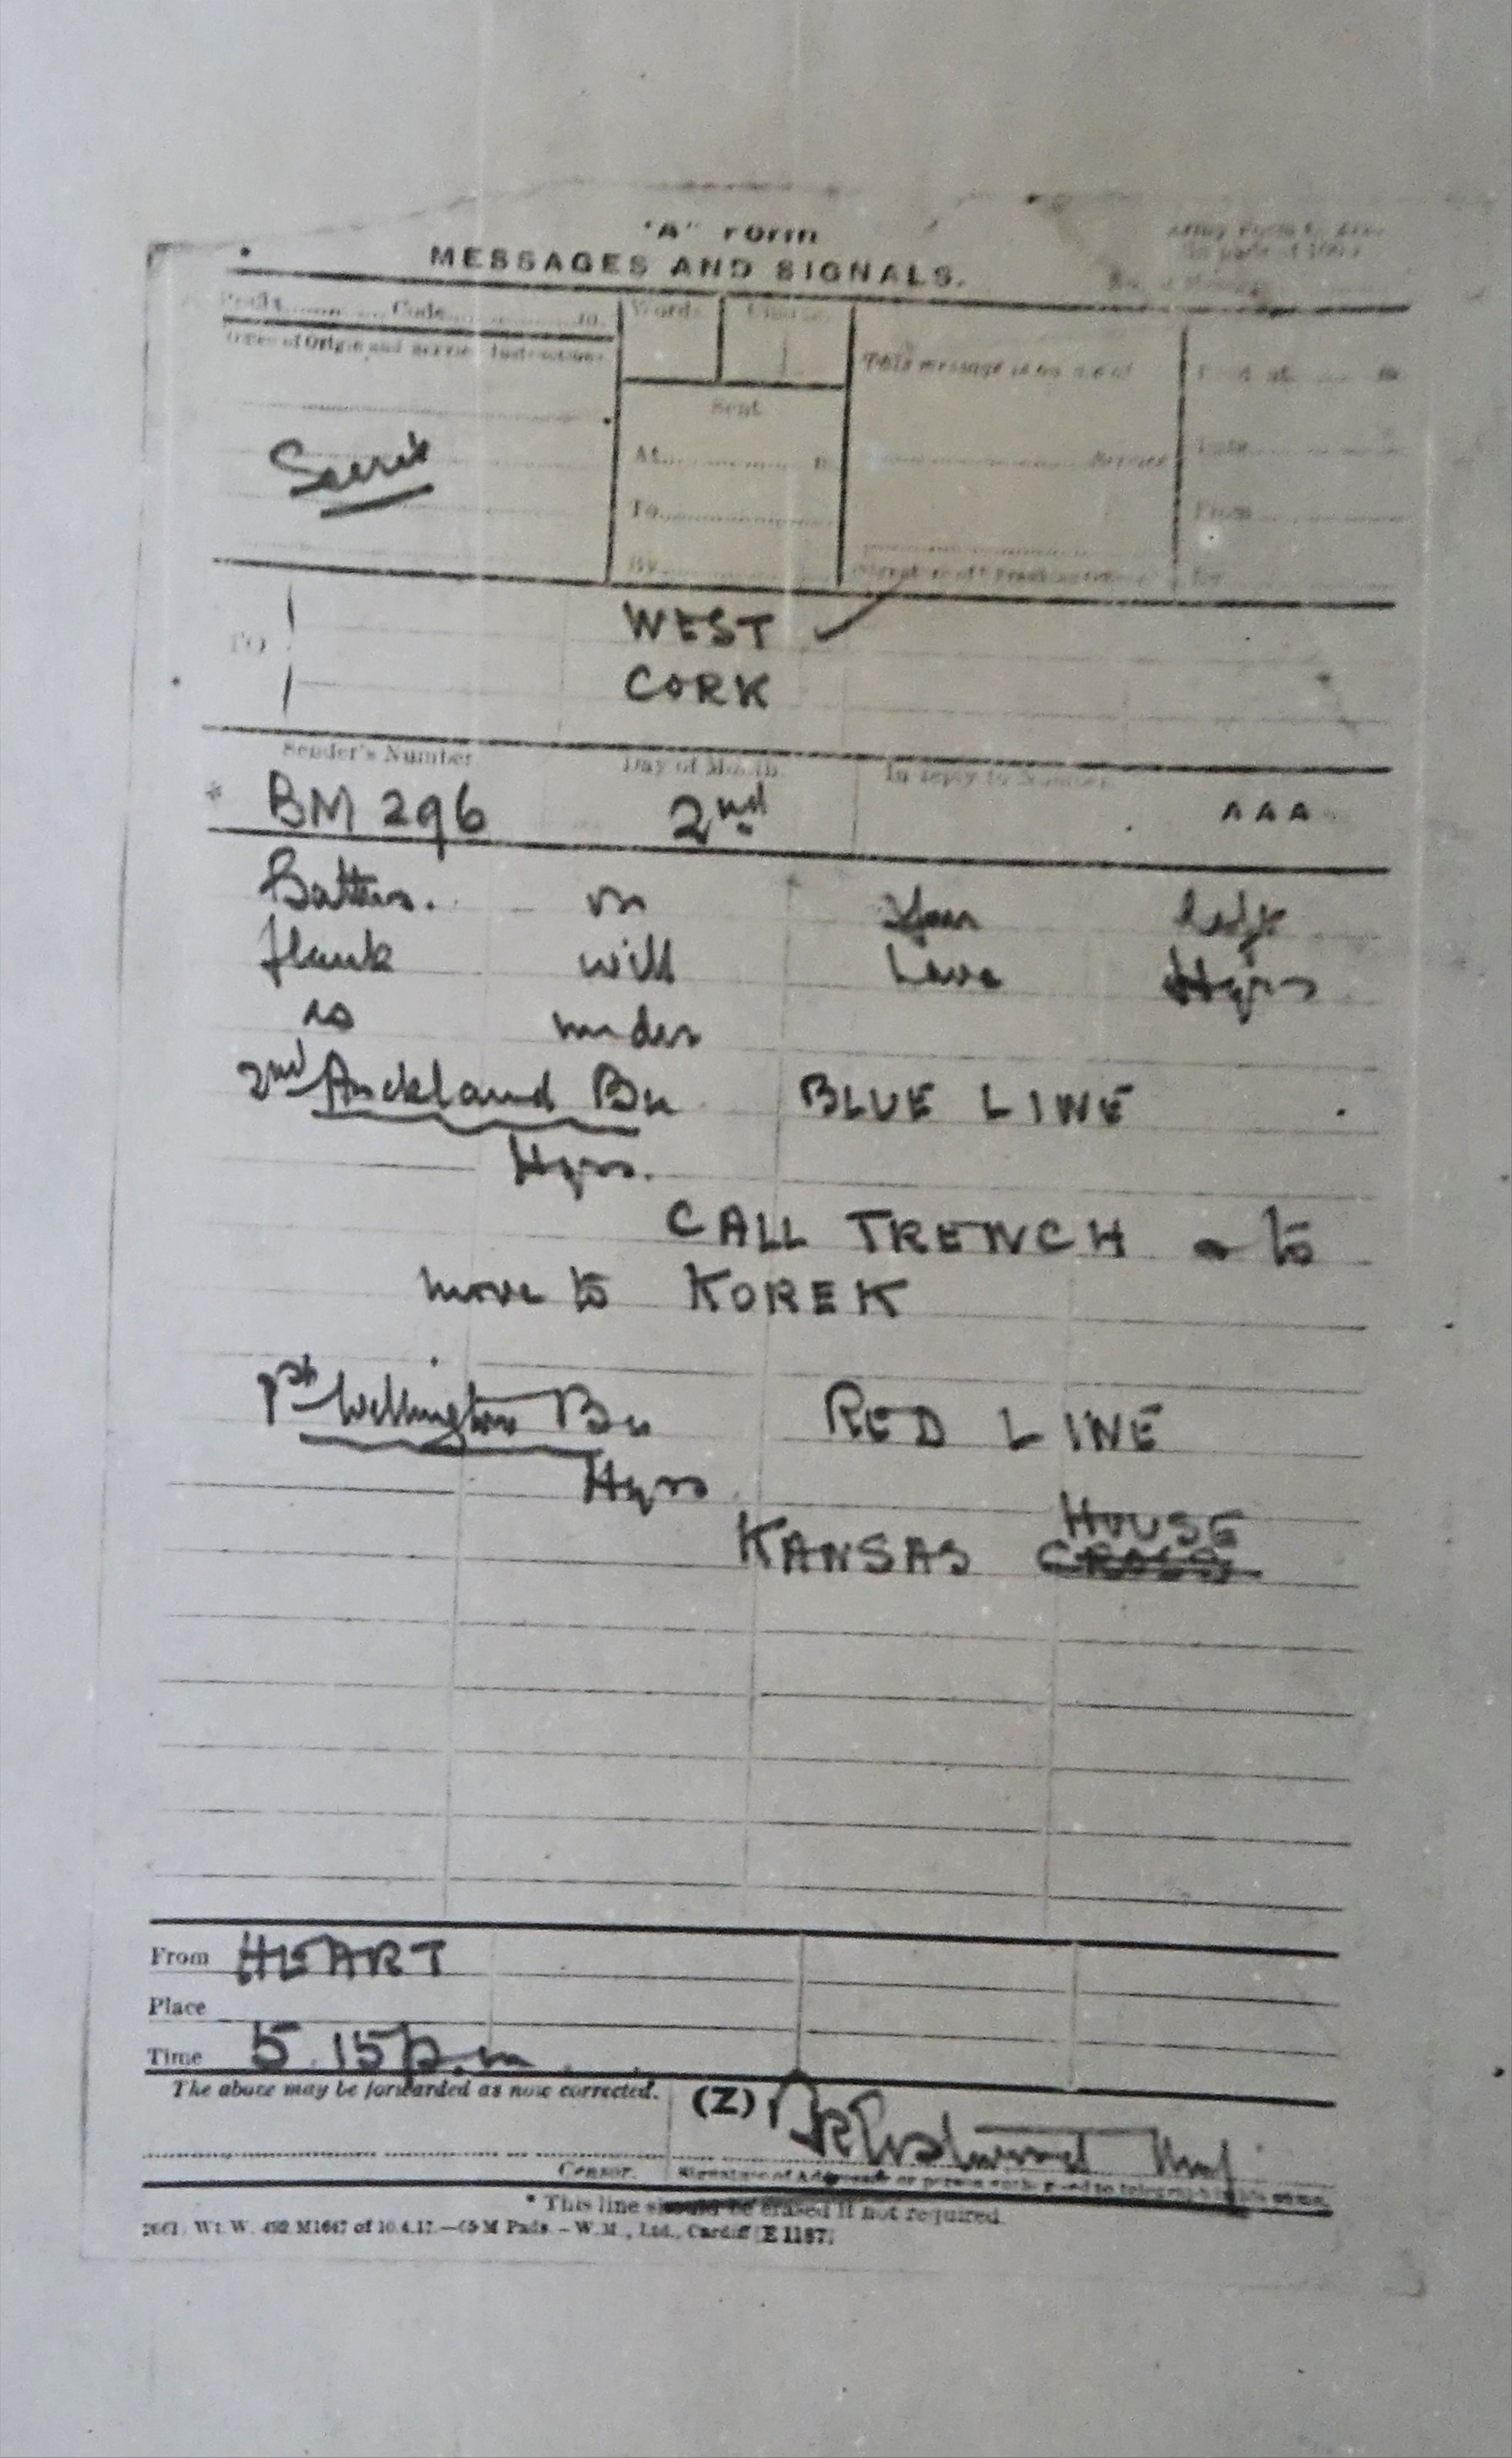 "A" Form
MESSAGES AND SIGNALS.
Prefix Code m. Words
Office of Origin and Service Instructions. This message is on a/c of
Sent
Secret
At m. Service Date
To From
By By
TO WEST
CORK
Sender's Number Day of Month In reply to Number
* BM 296 2nd AAA
Battns. on your left
flank will have Hqrs
as under
2nd Auckland Bn BLUE LINE
Hqrs.
CALL TRENCH - to
move to KOREK
1st Wellington Bn RED LINE
Hqrs
HOUSE
KANSAS CROSS
From HEART
Place
Time 5.15 p.m.
The above may be forwarded as now corrected. (Z)
Censor. Signature of Addressor or person authorised to telegraph in his name.
* This line should be erased if not required.
Wt. W. 492 M1647 of 10.4.17.—65M Pads.—W.M., Ltd., Cardiff (E 1187)